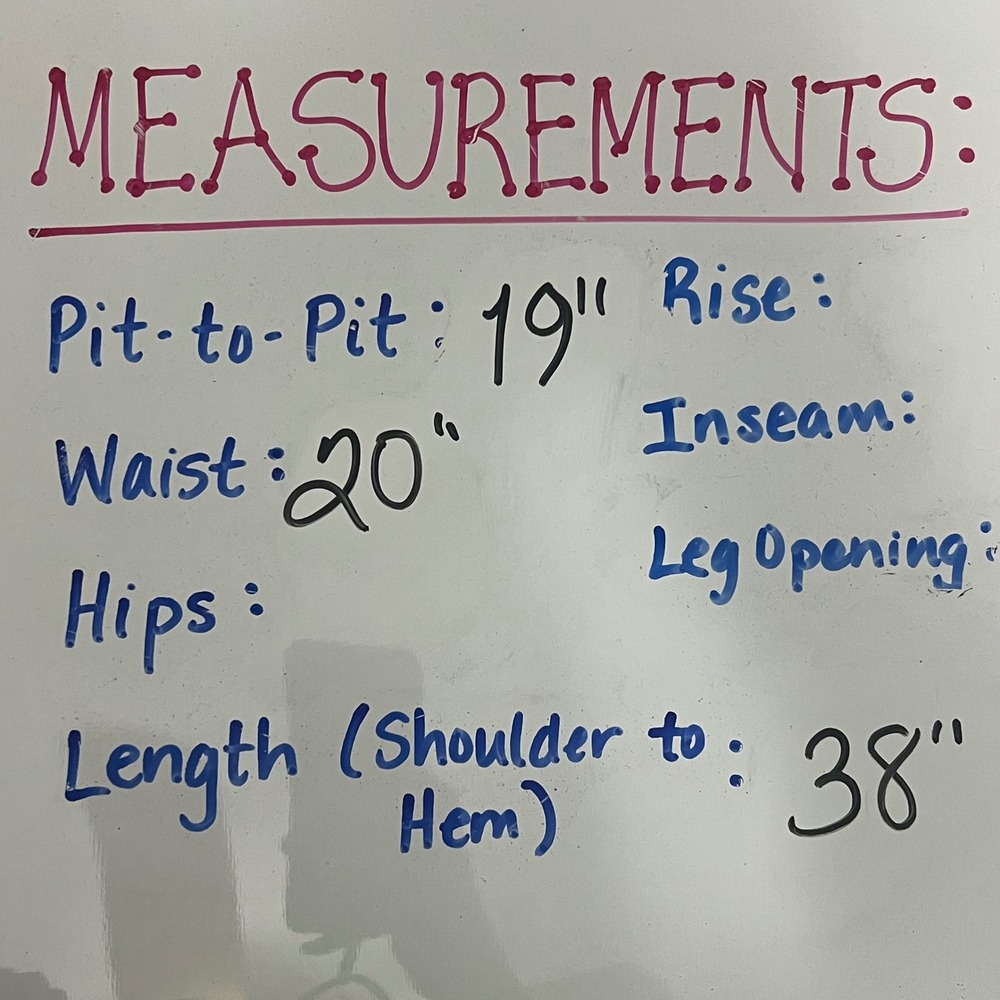 MEASUREMENTS:
Pit-to-Pit: 19"
Waist: 20"
Hips:
Length (Shoulder to Hem): 38"
Rise:
Inseam:
Leg Opening: